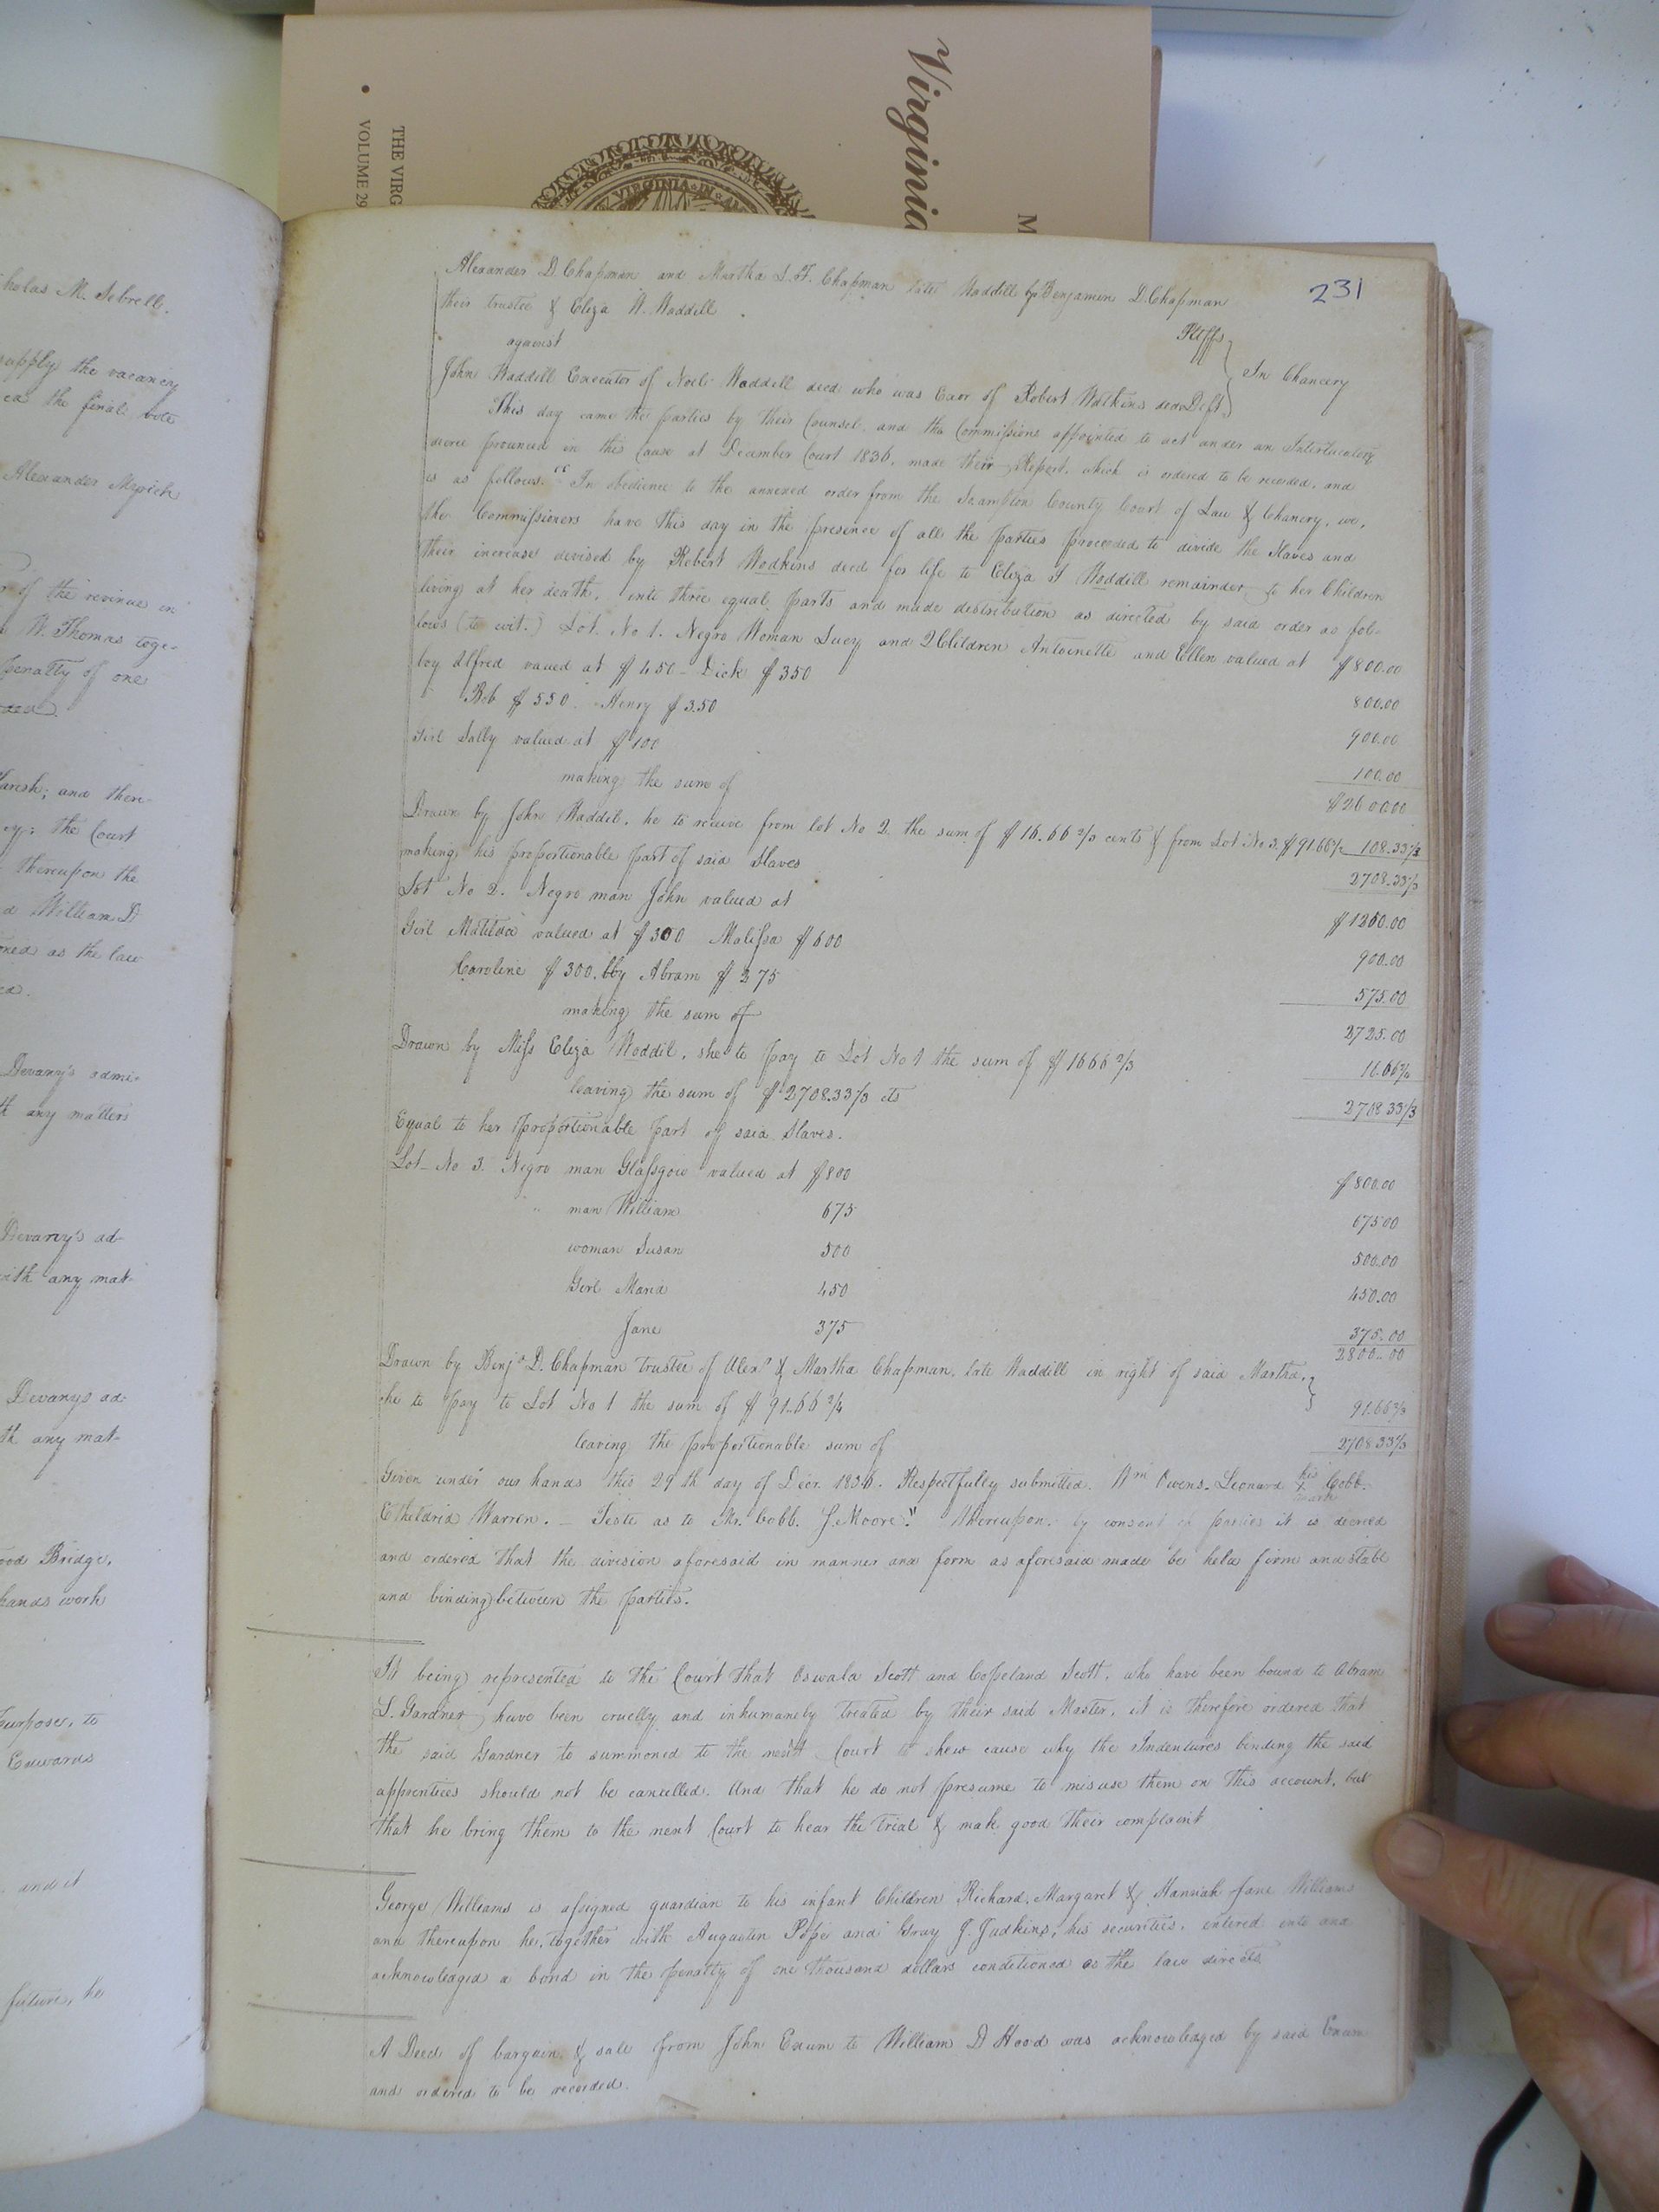 Virginia
M
THE VIRG
VOLUME 29
VIRGINIA IN
231
holas M. Sebrell.
supply the vacancy
ed the final vote
Alexander Myrick
of the revenue in
W. Thomas toge-
penalty of one
Parish; and there-
the Court
thereupon the
d William D
oned as the law
Devany's admi-
th any matters
Devany's ad-
with any mat-
Devanys ad-
th any mat-
ood Bridge,
hands work
purpose, to
Edwards
and it
future, he
Alexander D. Chapman and Martha S. F. Chapman late Waddill by Benjamin D. Chapman
their trustee & Eliza W. Waddill
Pltffs
against
In Chancery
John Waddill Executor of Noel Waddill decd who was Exor of Robert Watkins decd Deft.
This day came the parties by their Counsel, and the Commissions appointed to act under an Interlocutory
decree prounced in this Cause at December Court 1836, made their Report, which is ordered to be recorded, and
is as follows. "In obedience to the annexed order from the Southampton County Court of Law & Chancery, we,
the Commissioners have this day in the presence of all the parties proceeded to divide the Slaves and
their increase devised by Robert Wodkins decd for life to Eliza S Waddill remainder to her Children
living at her death, into three equal parts and made distribution as directed by said order as fol-
lows (to wit.) Lot. No 1. Negro Woman Lucy and 2 Children Antoinette and Ellen valued at $800.00
boy Alfred vaued at $450 – Dick $350 800.00
Bob $550. Henry $350 900.00
Girl Sally valued at $100 100.00
making the sum of $2600.00
Drawn by John Waddil, he to receive from lot No 2 the sum of $16.66 2/3 cents & from Lot No 3. $91.66 2/3 108.33 1/3
making his proportionable part of said Slaves 2708.33 1/3
Lot No 2. Negro man John valued at $1250.00
Girl Matilda valued at $300 Malissa $600 900.00
Caroline $300. boy Abram $275 575.00
making the sum of 2725.00
Drawn by Miss Eliza Waddil, she to pay to Lot No 1 the sum of $1666 2/3 16.66 2/3
leaving the sum of $2708.33 1/3 cts 2708 33 1/3
Equal to her proportionable part of said Slaves.
Lot No 3. Negro man Glassgow valued at $800 $800.00
" man William 675 675.00
woman Susan 500 500.00
Girl Maria 450 450.00
Jane 375 375.00
2800.00
Drawn by Benjn D. Chapman trustee of Alexr & Martha Chapman, late Waddill in right of said Martha,
he to pay to Lot No 1 the sum of $91.66 2/3 91.66 2/3
leaving the proportionable sum of 2708.33 1/3
Given under our hands this 29th day of Decr. 1836. Respectfully submitted. Wm Owens. Leonard his X mark Cobb.
Etheldrid Warren. – Teste as to Mr. Cobb. J. Moore." Whereupon, by consent of parties it is decreed
and ordered that the division aforesaid in manner and form as aforesaid made be held firm and stable
and binding between the parties.
It being represented to the Court that Oswald Scott and Copeland Scott, who have been bound to Abram
S. Gardner have been cruelly and inhumanely treated by their said Master, it is therefore ordered that
the said Gardner to summoned to the next Court to shew cause why the Indentures binding the said
apprentices should not be cancelled. And that he do not presume to misuse them on this account, but
that he bring them to the next Court to hear the trial & mak good their complaint
George Williams is assigned guardian to his infant Children Richard, Margaret & Hannah Jane Williams
and thereupon he, together with Augustin Pope and Gray J. Judkins, his securities, entered into and
acknowledged a bond in the penalty of one thousand dollars conditioned as the law directs
A Deed of bargain & sale from John Exum to William D Hood was acknowledged by said Exum
and ordered to be recorded.